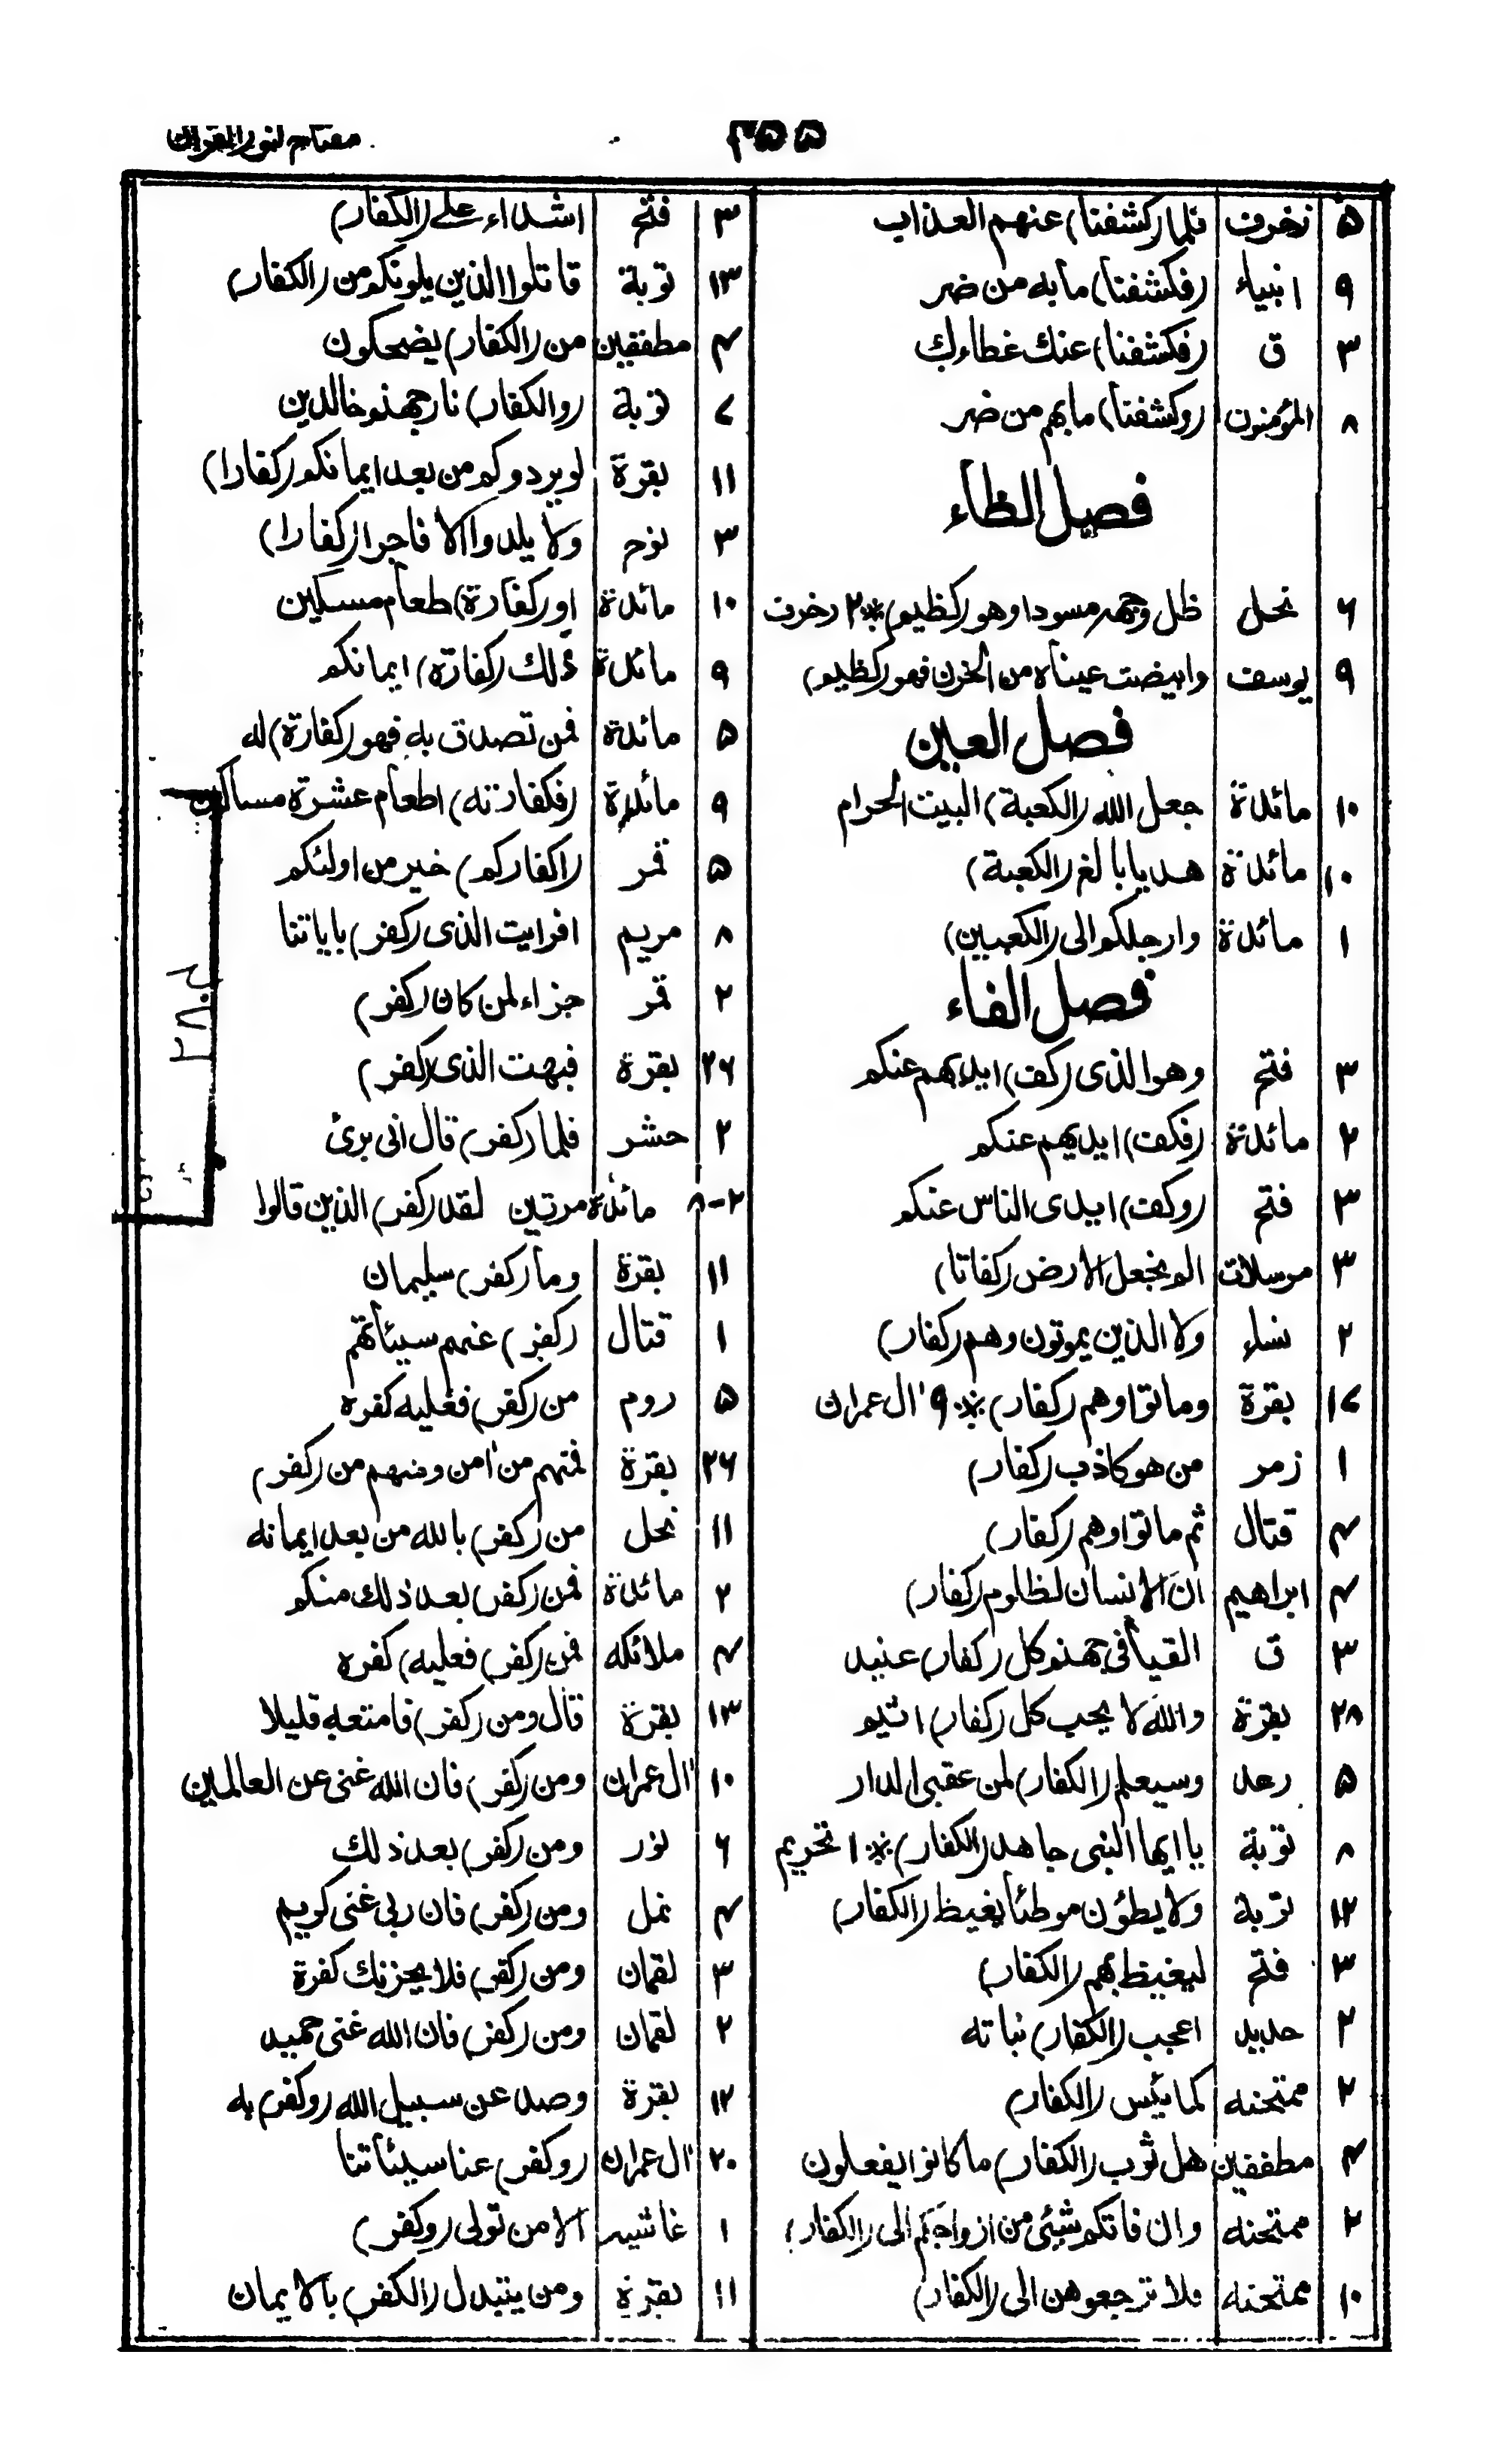 ۳۵۵
مفتاح كنوز القران
۵ زخرف فلما (كشفنا) عنهم العذاب
۹ انبياء (فكشفنا) ما به من ضر
۳ ق (فكشفنا) عنك غطاءك
۸ المؤمنون (وكشفنا) ما بهم من ضر
فصل الظاء
۶ نحل ظل وجهه مسودا وهو (كظيم) * ۲ زخرف
۹ يوسف وابيضت عيناه من الحزن فهو (كظيم)
فصل العين
۱۰ مائدة جعل الله (الكعبة) البيت الحرام
۱۰ مائدة هديا بالغ (الكعبة)
۱ مائدة وارجلكم الى (الكعبين)
فصل الفاء
۳ فتح وهو الذى (كف) ايديهم عنكم
۲ مائدة (فكف) ايديهم عنكم
۳ فتح (وكف) ايدى الناس عنكم
۳ مرسلات الم نجعل الارض (كفاتا)
۲ نساء ولا الذين يموتون وهم (كفار)
۱۷ بقرة وماتوا وهم (كفار) * ۹ اٰل عمران
۱ زمر من هو كاذب (كفار)
۴ قتال ثم ماتوا وهم (كفار)
۴ ابراهيم ان الانسان لظلوم (كفار)
۳ ق القيا فى جهنم كل (كفار) عنيد
۲۸ بقرة والله لا يحب كل (كفار) اثيم
۵ رعد وسيعلم (الكفار) لمن عقبى الدار
۸ توبة يا ايها النبى جاهد (الكفار) * ۱ تحريم
۱۲ توبة ولا يطؤن موطئا يغيظ (الكفار)
۳ فتح ليغيظ بهم (الكفار)
۲ حديد اعجب (الكفار) نباته
۲ ممتحنه كما يئس (الكفار)
۴ مطففين هل ثوب (الكفار) ما كانوا يفعلون
۲ ممتحنه وان فاتكم شيئ من ازواجكم الى (الكفار)
۱۰ ممتحنه فلا ترجعوهن الى (الكفار)
۳ فتح اشداء على (الكفار)
۱۳ توبة قاتلوا الذين يلونكم من (الكفار)
۴ مطففين من (الكفار) يضحكون
۷ توبة (والكفار) نار جهنم خالدين
۱۱ بقرة لو يردوكم من بعد ايمانكم (كفارا)
۳ نوح ولا يلدوا الا فاجرا (كفارا)
۱۰ مائدة او (كفارة) طعام مسكين
۹ مائدة ذلك (كفارة) ايمانكم
۵ مائدة فمن تصدق به فهو (كفارة) له
۹ مائدة (فكفارته) اطعام عشرة مساكين
۵ قمر (اكفاركم) خير من اولئكم
۸ مريم افرايت الذى (كفر) باياتنا
۲ قمر جزاء لمن كان (كفر)
۲۶ بقرة فبهت الذى (كفر)
۲ حشر فلما (كفر) قال انى برئ
۲-۸ مائدة مرتين لقد (كفر) الذين قالوا
۱۱ بقرة وما (كفر) سليمان
۱ قتال (كفر) عنهم سيئاتهم
۵ روم من (كفر) فعليه كفره
۲۶ بقرة فمنهم من اٰمن ومنهم من (كفر)
۱۱ نحل من (كفر) بالله من بعد ايمانه
۲ مائدة فمن (كفر) بعد ذلك منكم
۴ ملائكه فمن (كفر) فعليه) كفره
۱۳ بقرة قال ومن (كفر) فامتعه قليلا
۱۰ اٰل عمران ومن (كفر) فان الله غنى عن العالمين
۶ نور ومن (كفر) بعد ذلك
۴ نمل ومن (كفر) فان ربى غنى كريم
۳ لقمان ومن (كفر) فلا يحزنك كفرة
۲ لقمان ومن (كفر) فان الله غنى حميد
۱۲ بقرة وصد عن سبيل الله (وكفر) به
۲۰ اٰل عمران (وكفر) عنا سيئاتنا
۱ غاشيه الا من تولى (وكفر)
۱۱ بقرة ومن يتبدل (الكفر) بالايمان